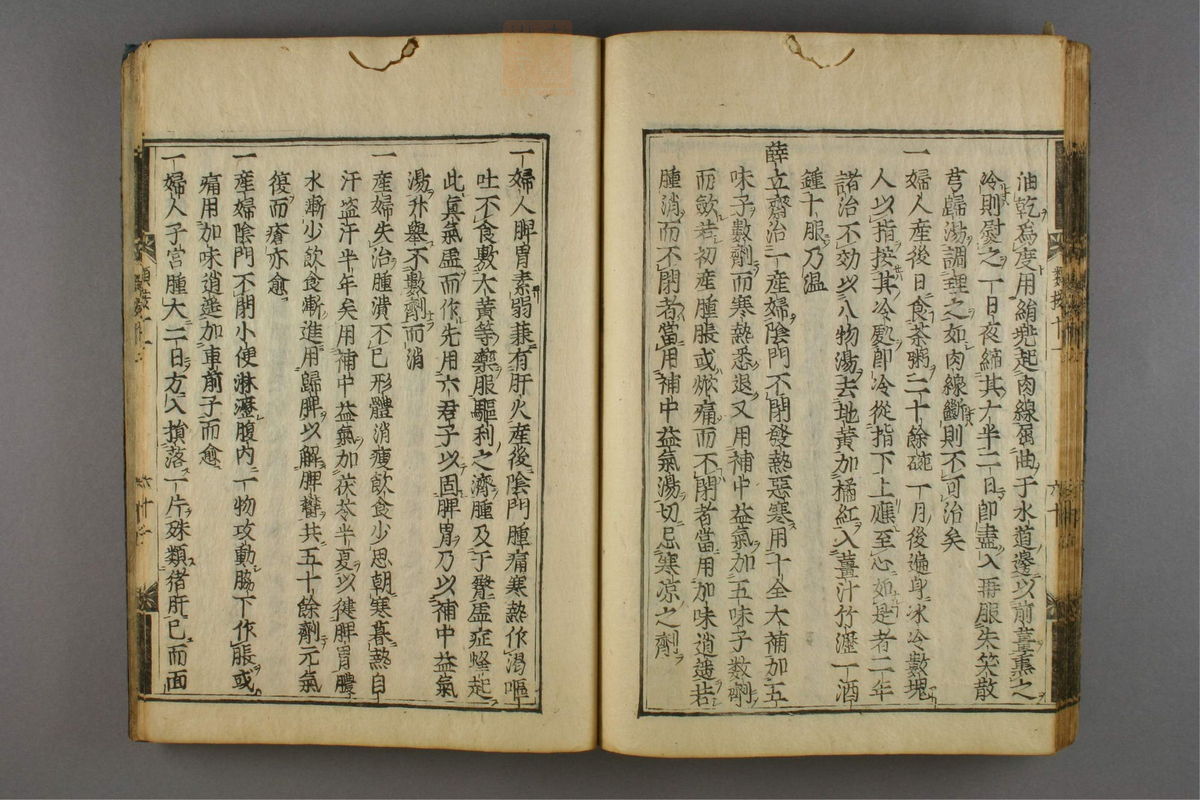 油乾為度用絹兜起肉線屈曲于水道邊以前薑熏之
冷則熨之一日夜縮其大半二日即盡入再服失笑散
芎歸湯調理之如肉線斷則不可治矣
一婦人産後日食茶粥二十餘碗一月後遍身冰冷數塊
人以指按其冷處即冷從指下上應至心如是者二年
諸治不効以八物湯去地黃加橘紅入薑汁竹瀝一酒
鍾十服乃温
薛立齋治一産婦陰門不閉發熱惡寒用十全大補加五
味子數劑而寒熱悉退又用補中益氣加五味子数劑
而斂若初産腫脹或焮痛而不閉者當用加味逍遥若
腫消而不閉者當用補中益氣湯切忌寒凉之劑
類按十一
六十
一婦人脾胃素弱兼有肝火産後陰門腫痛寒熱作渴嘔
吐不食敷大黃等藥服驅利之濟腫及于臀虛症蜂起
此真氣虛而作先用六君子以固脾胃乃以補中益氣
湯升舉不數劑而消
一産婦失治腫潰不已形體消瘦飲食少思朝寒暮熱自
汗盗汗半年矣用補中益氣加茯苓半夏以健脾胃膿
水漸少飲食漸進用歸脾以解脾欝共五十餘劑元氣
復而瘡亦愈
一産婦陰門不閉小便淋瀝腹内一物攻動脇下作脹或
痛用加味逍遥加車前子而愈
一婦人子宮腫大二日方入損落一片殊類猪肝已而面